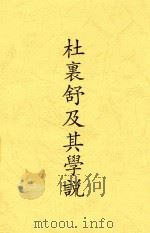 杜裏舒及其學說
www.mtoou.info